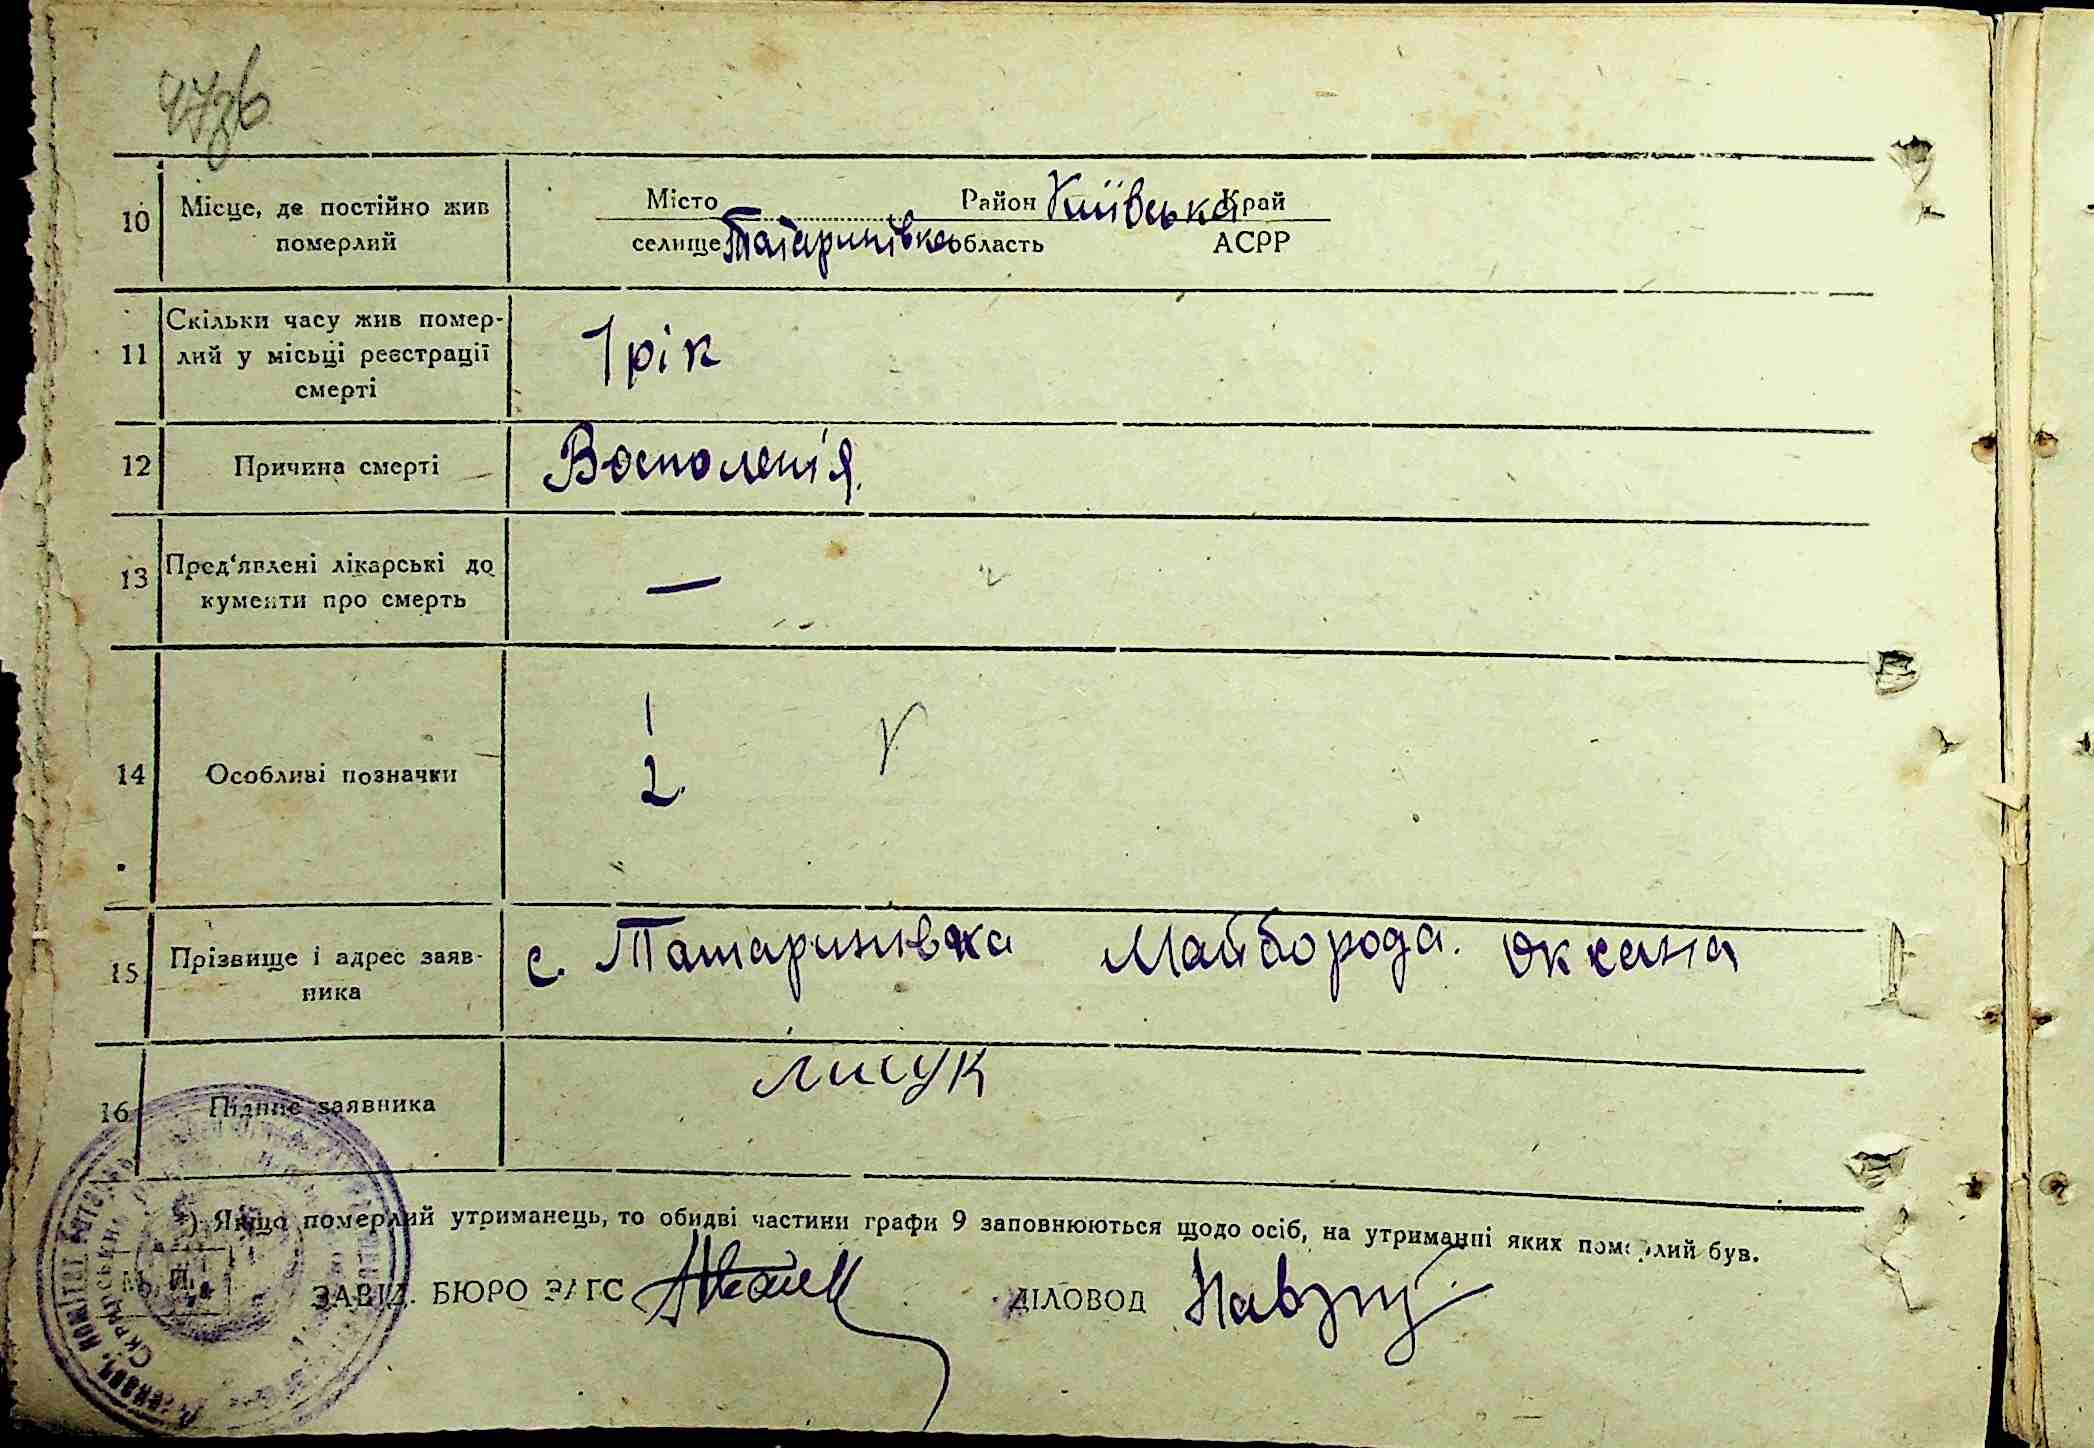 10 Місце, де постійно жив померлий
Місто Район Київська Край
селище Татаринівка область АСРР
11 Скільки часу жив помер-
лий у місьці реєстрації
смерті
1 рік
12 Причина смерті Восполенія.
13 Пред'явлені лікарські до
кументи про смерть
—
14 Особливі позначки
1
2
15 Прізвище і адрес заяв-
ника
с. Татаринівка Майборода. Оксана
16 Підпис заявника
лисук
*) Якщо померлий утриманець, то обидві частини графи 9 заповнюються щодо осіб, на утриманні яких померлий був.
ЗАВІД. БЮРО ЗАГС ДІЛОВОД